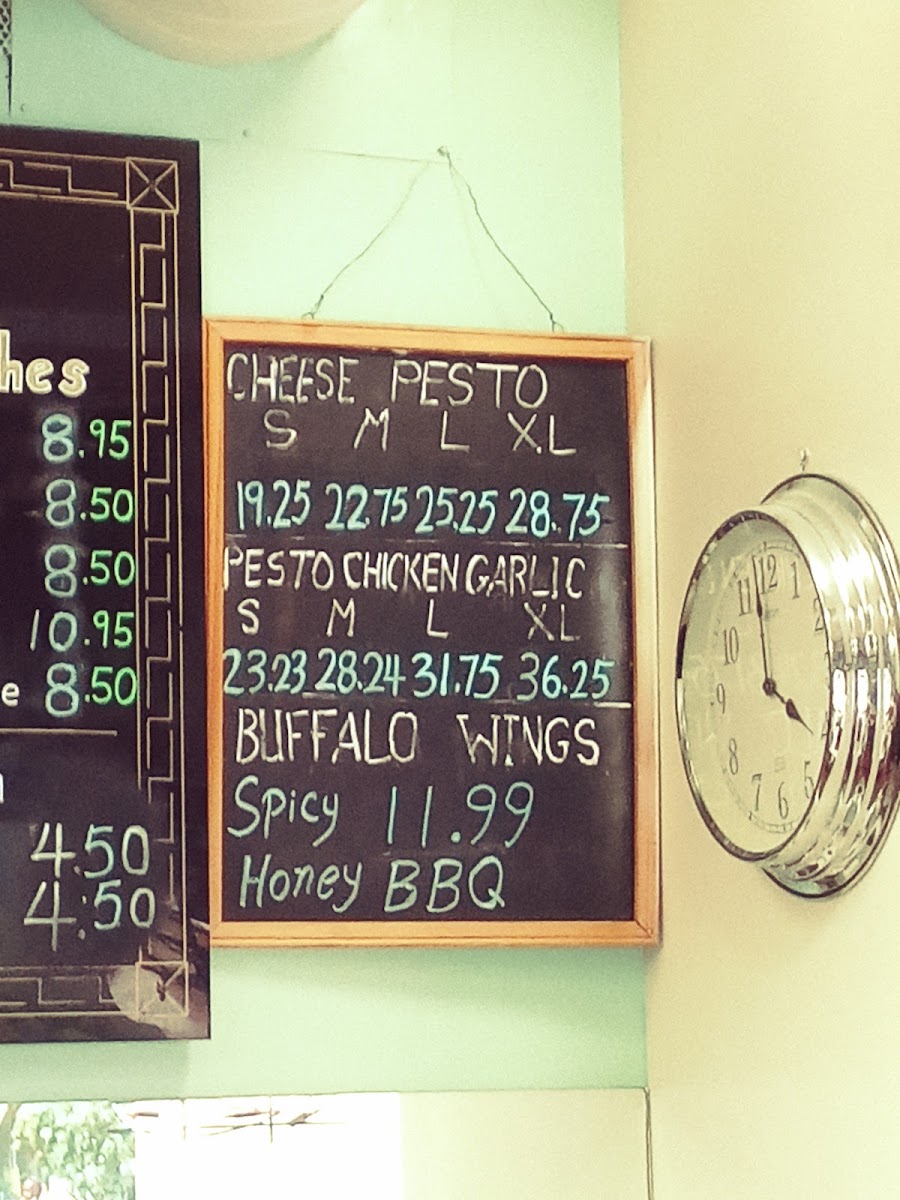 hes
8.95
8.50
8.50
10.95
e 8.50
4.50
4.50
CHEESE PESTO
S M L XL
19.25 22.75 25.25 28.75
PESTO CHICKEN GARLIC
S M L XL
23.23 28.24 31.75 36.25
BUFFALO WINGS
Spicy 11.99
Honey BBQ
12
1
2
5
6
7
8
9
10
11